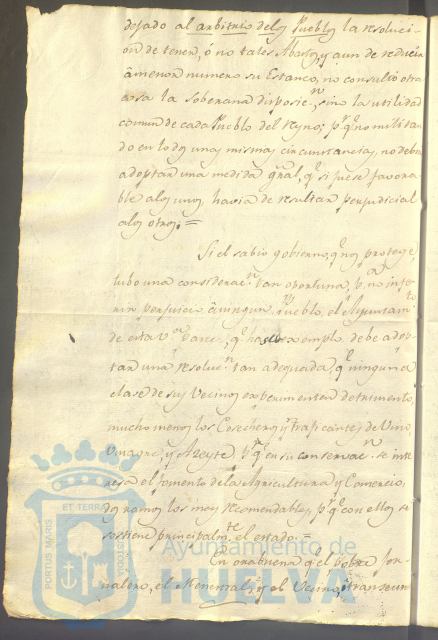 dejado al arbitrio delos Pueblos la resoluci-
ón de tener, ó no tales Abastos, y aun de reducir
â menor numero su Estanco, no consultó otra
cosa la Soberana disposicn. sino la utilidad
comun de cada Pueblo del Reyno; pr. qe. no militan-
do en todos unas mismas circunstancias, no debia
adoptar una medida gral, qe. si fuese favora-
ble alos unos, havia de resultar perjudicial
alos otros =
Si el sabio gobierno, qe. nos protege
tubo una consideracn. tan oportuna, pa. no infe-
rir perjuicio â ningun Pueblo, el Ayuntamto.
de esta Va. parece, qe. has su exemplo debe adop-
tar una resolucn. tan adequada, qe. ninguna
clase de sus Vecinos experimenten detrimento,
mucho menos los Cosecheros y traficantes de Vino
Vinagre, y Azeyte pr. qe. en su conservacn. se inte-
resa el fomento dela Agricultura y Comercio,
dos ramos los mas recomendables, pr. qe. con ellos se
sostiene principalmte. el estado. =
En orabuena qe. el pobre jor-
nalero, el Menestral, y el Vecino, transeun
PORTUS MARIS ET TERRAE CUSTODIA
Ayuntamiento de
HUELVA